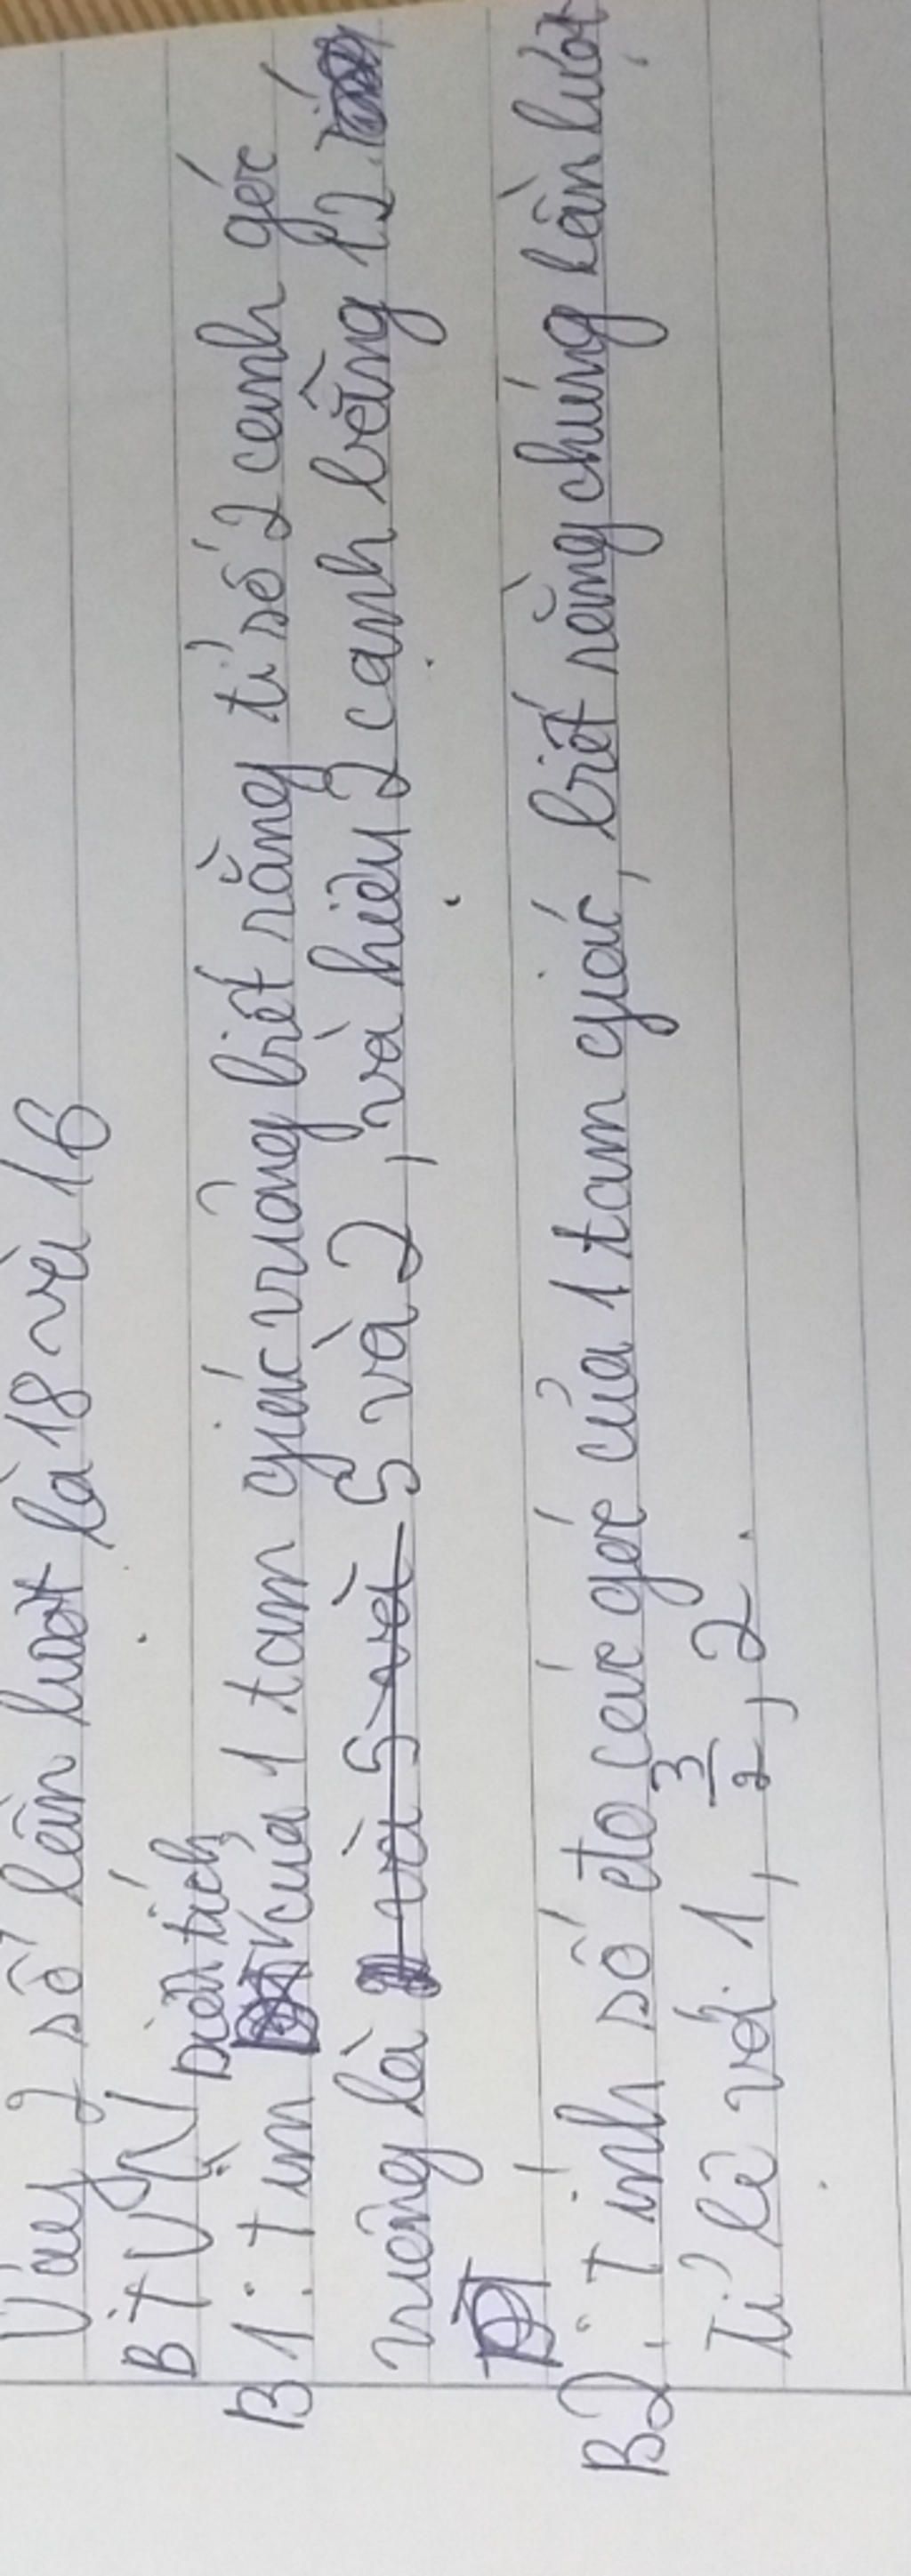 Vậy 2 số lần lượt là 18 và 16
BTVN
Diện tích
B1: Tìm của 1 tam giác vuông biết rằng tỉ số 2 cạnh góc
vuông là và 5 và 5 và 2, và hiệu 2 cạnh bằng 12.
B2: Tính số đo các góc của 1 tam giác, biết rằng chúng lần lượt
Tỉ lệ với 1, 3/2, 2.